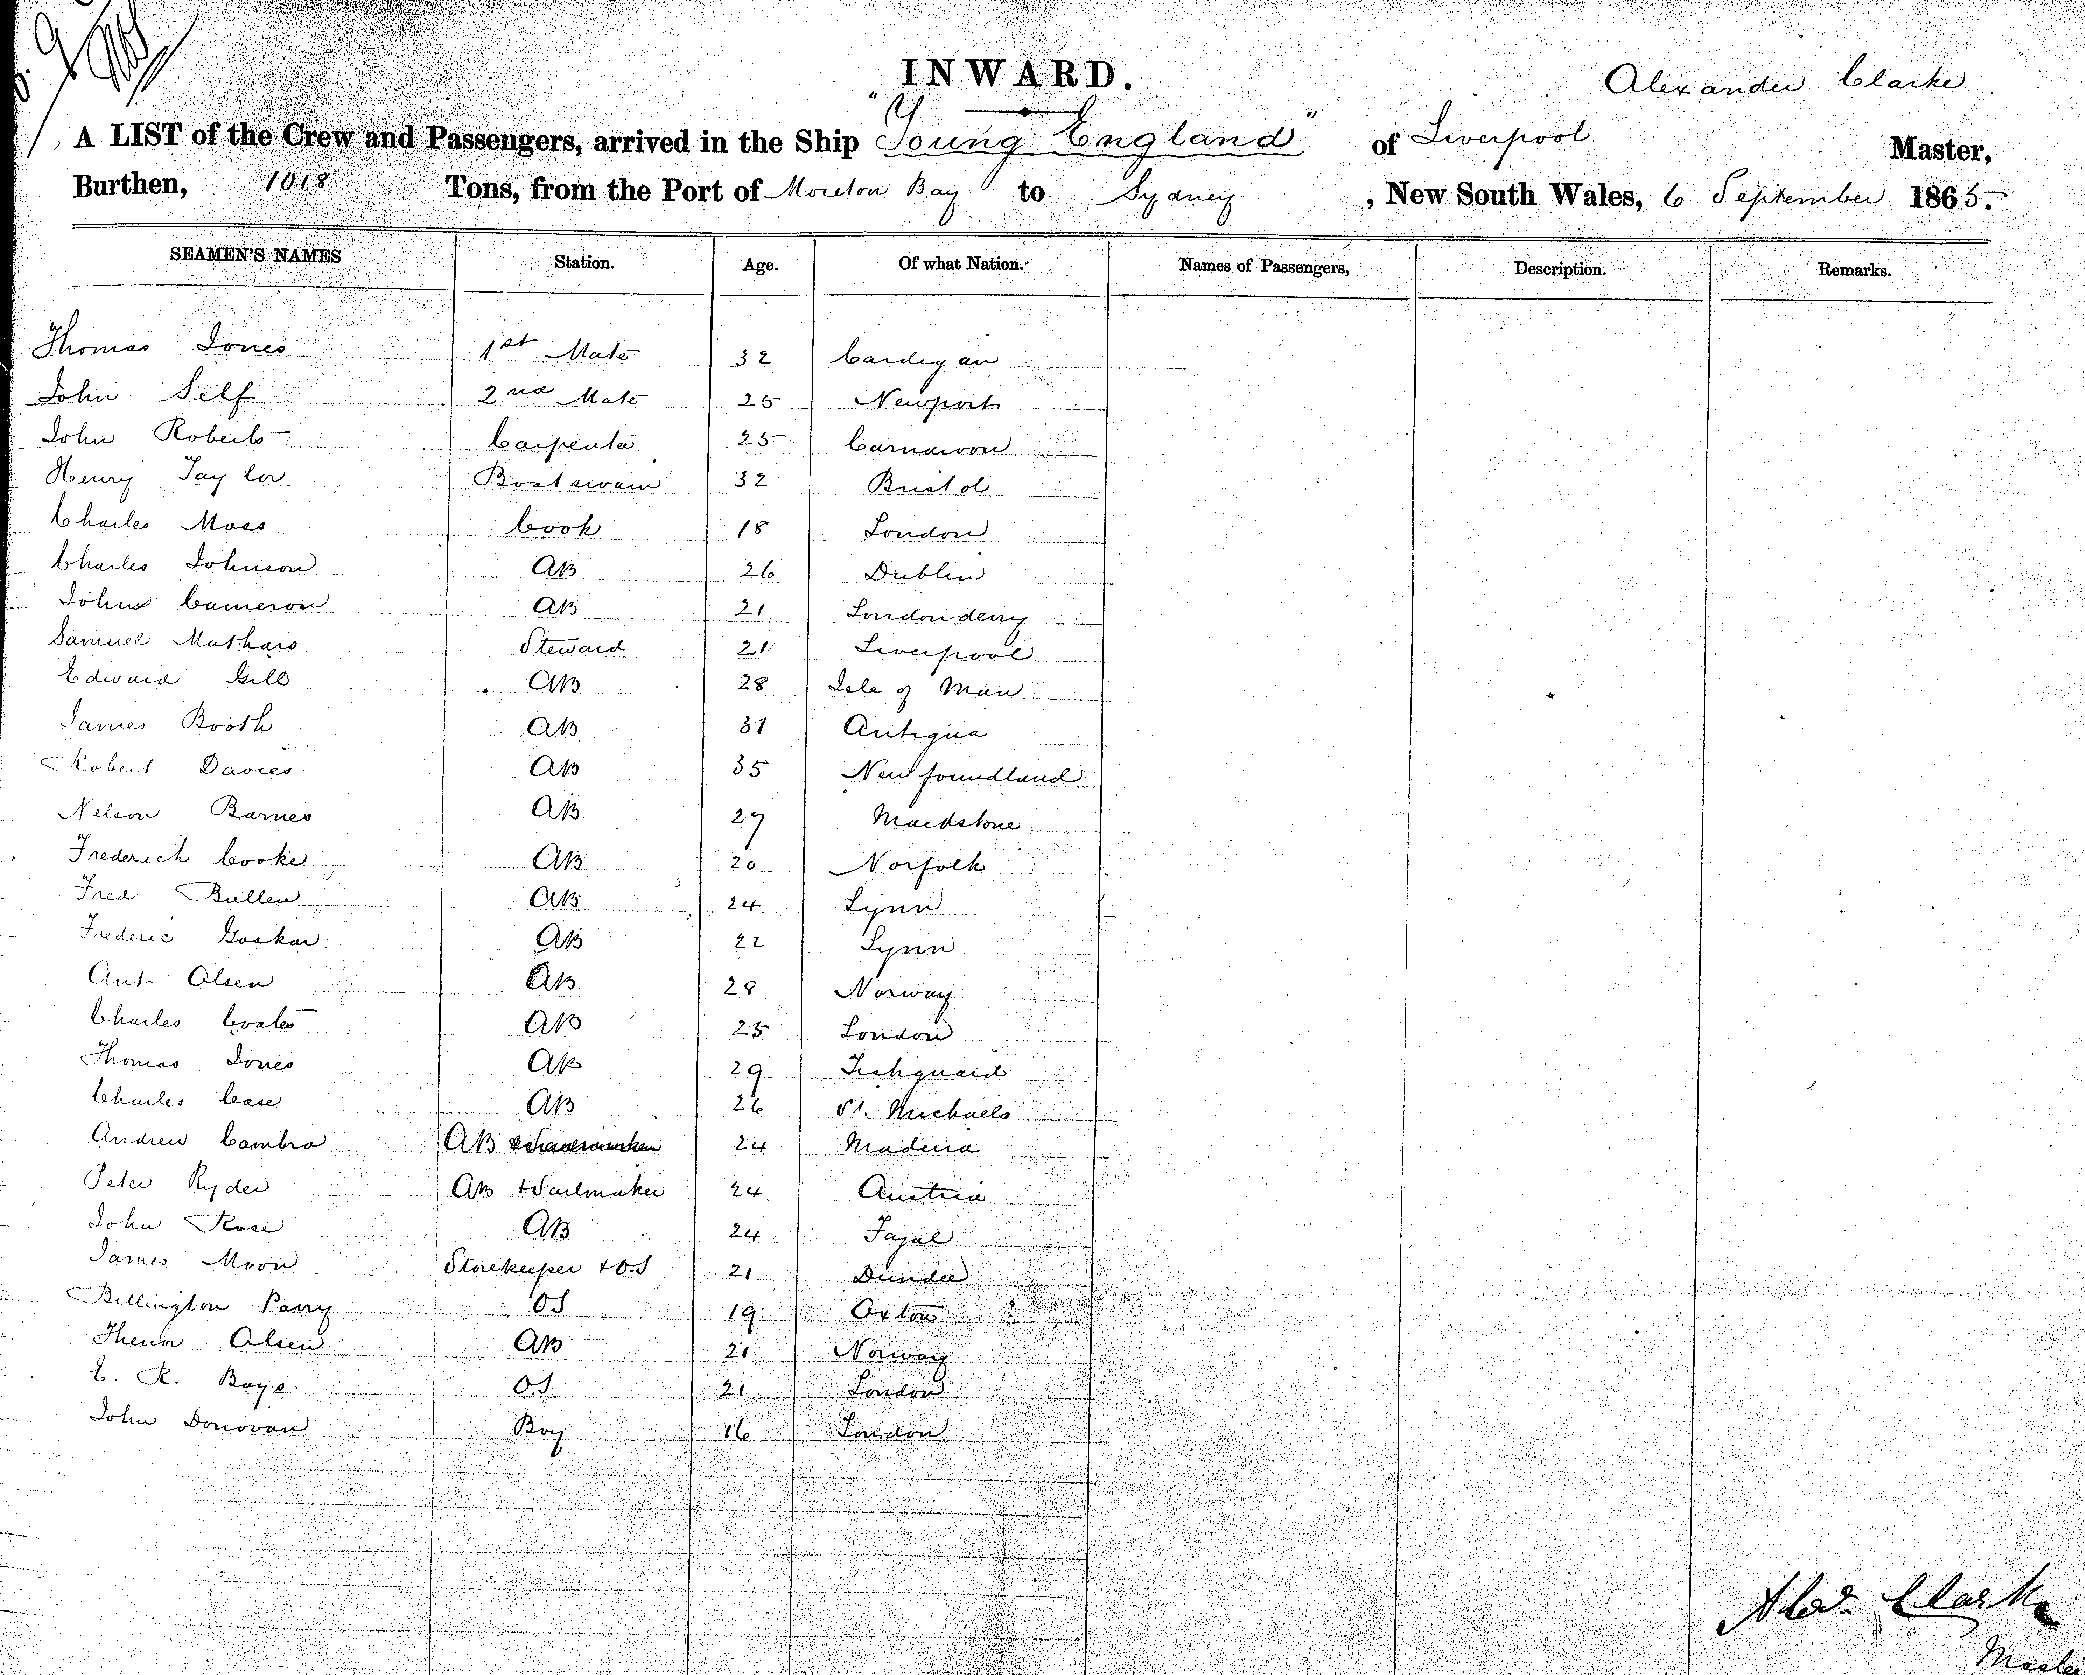 INWARD.
Alexander Clarke
A LIST of the Crew and Passengers, arrived in the Ship "Young England" of Liverpool Master,
Burthen, 1018 Tons, from the Port of Moreton Bay to Sydney, New South Wales, 6 September 1865.
SEAMEN'S NAMES Station. Age. Of what Nation. Names of Passengers, Description. Remarks.
Thomas Jones 1st Mate 32 Cardigan
John Self 2nd Mate 25 Newport
John Roberts Carpenter 25 Carnarvon
Henry Taylor Boatswain 32 Bristol
Charles Moss Cook 18 London
Charles Johnson AB 26 Dublin
John Cameron AB 21 Londonderry
Samuel Mathars Steward 21 Liverpool
Edward Gill AB 28 Isle of Man
James Booth AB 31 Antigua
Robert Davies AB 35 Newfoundland
Nelson Barnes AB 27 Maidstone
Frederich Cooke AB 20 Norfolk
Fred Bullen AB 24 Lynn
Frederic Goskar AB 22 Lynn
Ant Olsen AB 28 Norway
Charles Coates AB 25 London
Thomas Jones AB 29 Fishguard
Charles Case AB 26 St. Michaels
Andrew Cambro AB 24 Madeira
Peter Ryder AB + Sailmaker 24 Austria
John Rose AB 24 Fayal
James Moon Storekeeper + OS 21 Dundee
Billington Parry OS 19 Oxton
Olsen AB 21 Norway
C. R. Boys OS 21 London
John Donovan Boy 16 London
Alexr. Clarke
Master